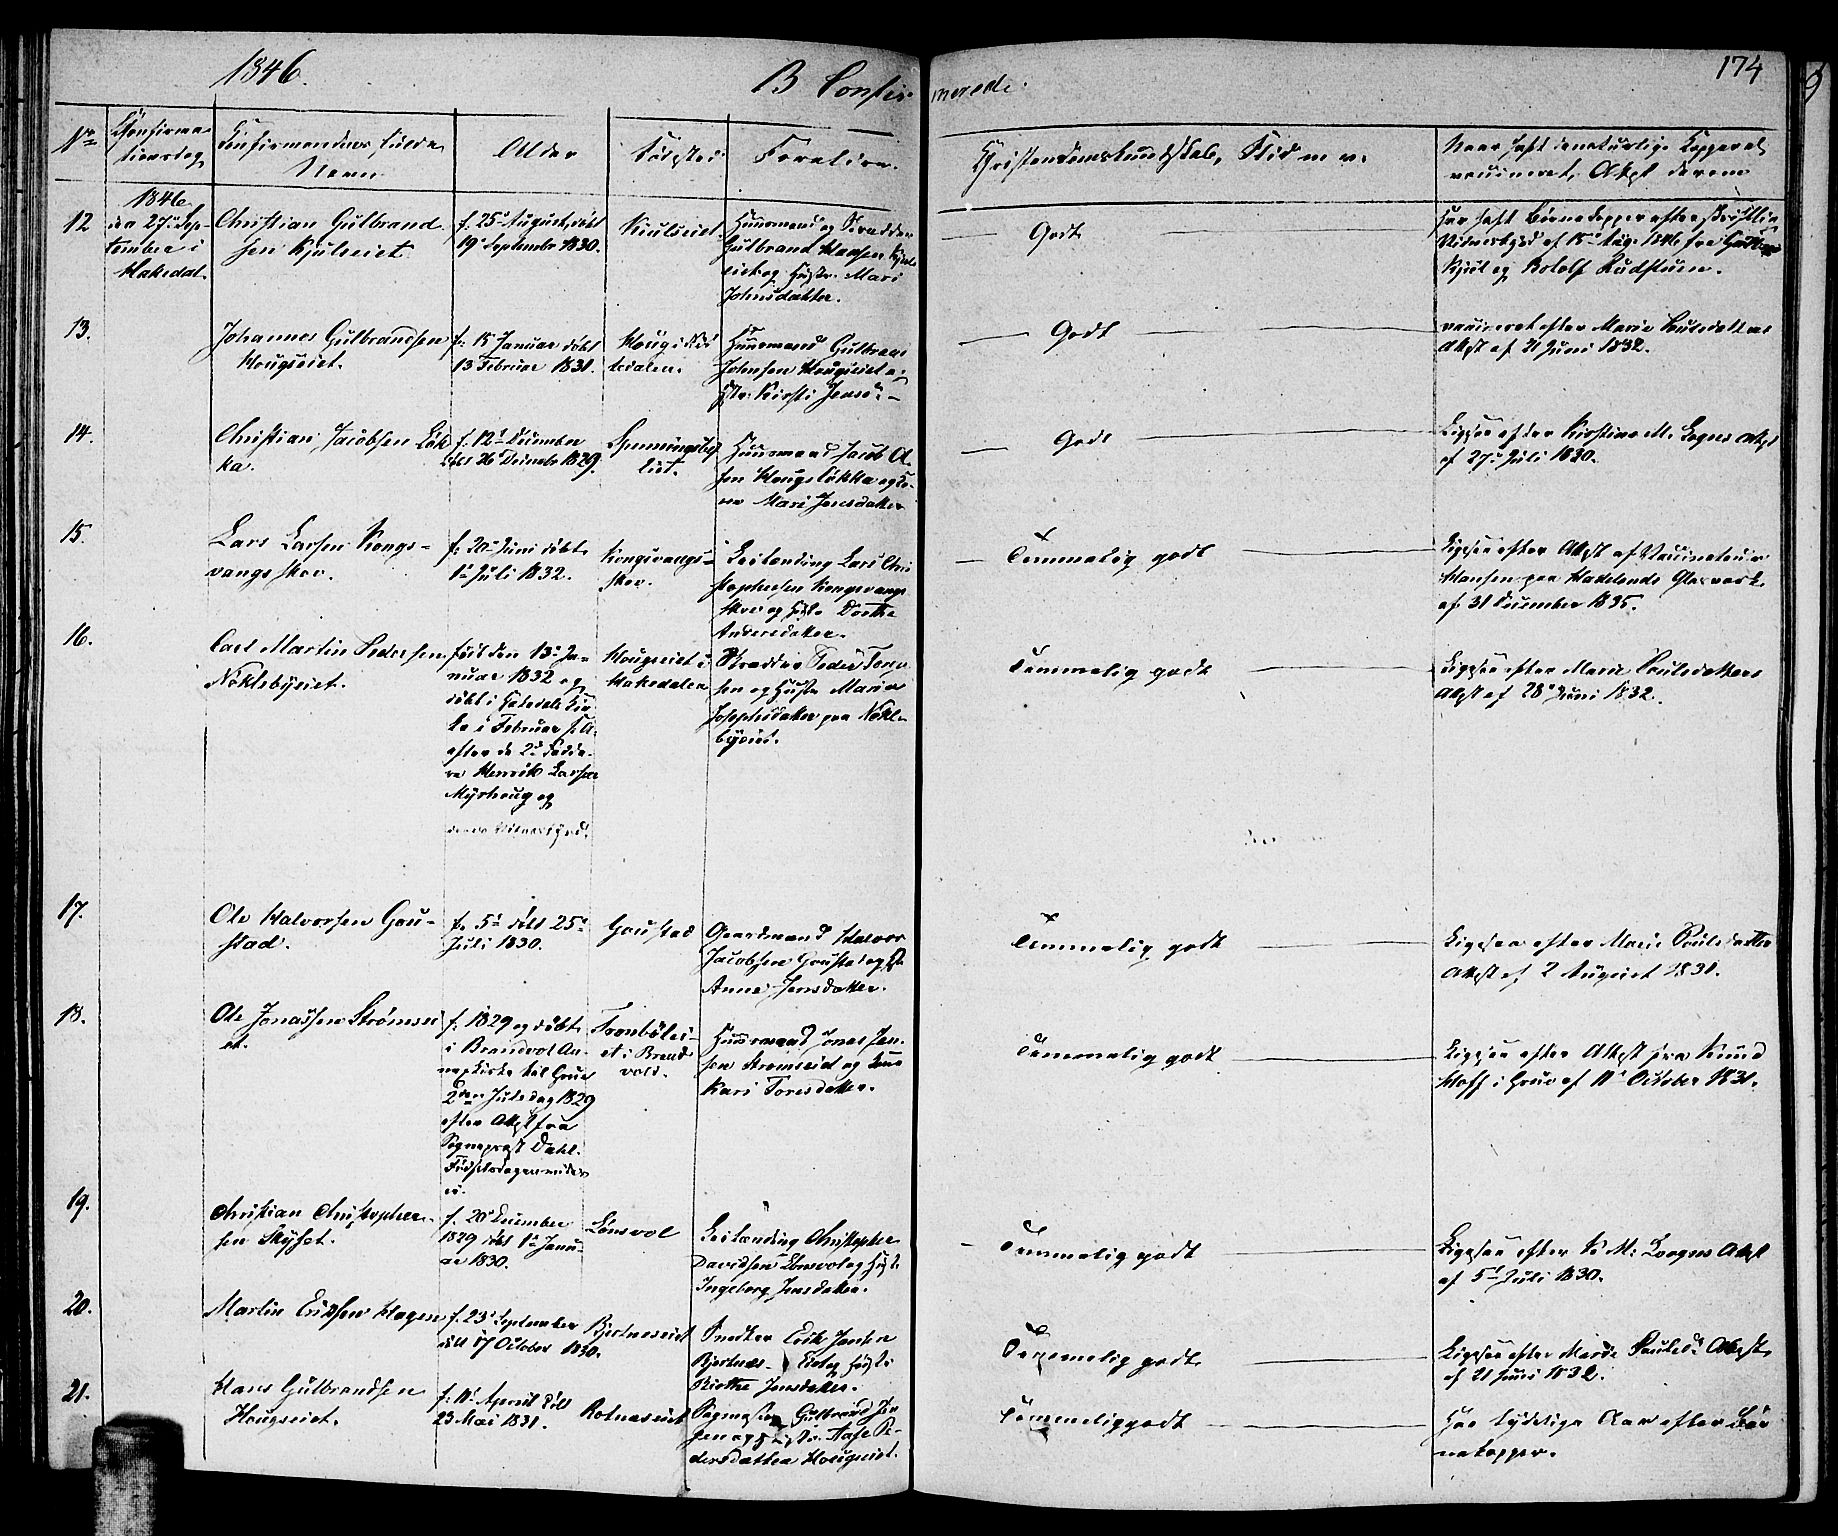 1846.
B Confir-
merede.
174
No
Confirma-
tionsdag
Confirmandens fulde
Navn
Alder
Födested
Foreldre.
Christendomskundskab, Flid m. v.
Naar haft de naturlige Kopper el.
vaccineret, Attest derom
12
1846
den 27de Sep-
tember i
Hakedal.
Christian Gulbrand-
sen Kjulseiet
f. 25d August, döbt
19d September 1830.
Kiulseiet
Huusmand og Skrædder
Gulbrand Hansen Kjuls-
eiet og Hustr. Mari
Johnsdatter.
Godt
Har haft Börnekopper efter skriftlig
Vidnesbyrd af 15d Aug. 1846 fra
Kjul og Rololf Rudstuen.
13.
Johannes Gulbrandsen
Hougseiet.
f. 15 Januar döbt
13 Februar 1831.
Houg i Hak-
kedalen.
Huusmand Gulbrand
Johnsen Hougseiet og
Hstr. Kirsti Jensd.
Godt
vaccineret efter Marie Poulsdatters
Attest af 21 Juni 1832.
14.
Christian Jacobsen Lök-
ka.
f. 12d December
döbt 26 Decembr 1829.
Huusmand Jacob Ol-
sen Hougslökka og Ko-
ne Mari Jensdatter
Godt
Ligesaa efter Kirstine M. Logns Attest
af 27d Juli 1830.
15.
Lars Larsen Kongs-
vangsskov.
f. 20d Juni döbt
1d Juli 1832.
Kongsvangs-
skov.
Lars Chri-
stophersen Kongsvangs-
skov og Hstr. Dorthe
Andersdatter.
Temmelig godt
Ligesaa efter Attest af Vaccinateur
Hansen paa Hakedals Glasverk
af 31 December 1835.
16.
Carl Martin Pedersen
Noklebyeiet.
född den 13d Ja-
nuar 1832 og
döbt i Hakedals Kir-
ke i Februar s. A.
efter de 2d Fadde-
re Henrik Larsen
Myrhoug og
deres Vidnesbyrd.
Hougseiet i
Hakedalen
Skrædder Peder
sen og Hustr. Maria
Josephsdatter paa Nökle-
byeiet.
Temmelig godt
Ligesaa efter Marie Poulsdatters
Attest af 28d Juni 1832.
17.
Ole Halvorsen Gou-
stad.
f. 5d döbt 25d
Juli 1830.
Goustad
Gaardmand Halvor
Jacobsen Goustad og
Anne Jensdatter.
Temmelig godt
Ligesaa efter Marie Poulsdatter
Attest af 2 August 1831.
18.
Ole Jonassen Strömsei-
et.
f. 1829 og döbt
i Brandvol An-
nexkirke til Grue
2den Juledag 1829
efter Attest fra
Sogneprest Dahl.
Födselsdagen vides
ei.
Trönbölei-
et i Brand-
vold.
Huusmand Jonas Jen-
sen Strömseiet og Kone
Kari Toresdatter.
Temmelig godt
Ligesaa efter Attest fra Knud
Hoff i Grue af 11d October 1831.
19.
Christian Christopher-
sen Skyset.
f. 20d December
1829 döbt 1d Janu-
ar 1830.
Lönsvol
Christopher
Davidsen Lönsvol og Hstr.
Ingeborg Jensdatter.
Temmelig godt
Ligesaa efter K. M. Loegns Attest
af 5d Juli 1830.
20.
Martin Eriksen Hagen
f. 23d September
döbt 17 October 1830.
Bjertneseiet
Snedker Erik Jensen
Bjertnes-Eiet og Hustr.
Birthe Jensdatter.
Temmelig godt
Ligesaa efter Marie Poulsd. Attest
af 21 Juni 1832.
21.
Hans Gulbrandsen
Hougseiet.
f. 11d April döbt
23 Mai 1831.
Rotneseiet
Gulbrand Jen-
sen og Hustr.
dersdatter Hougseiet.
Temmelig godt
Har tydelige Aar efter Bör-
nekopper.